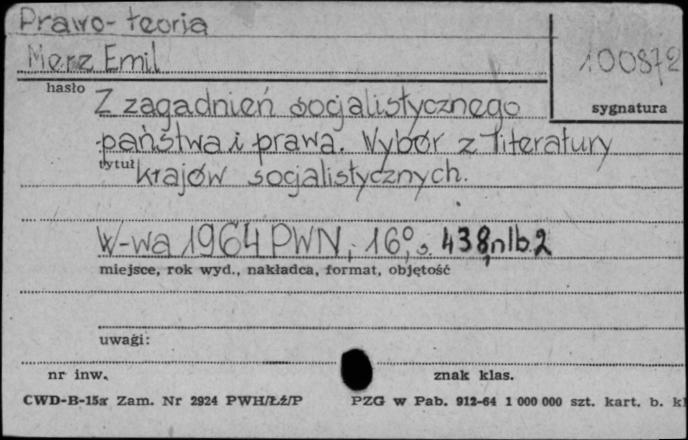 Prawo-teoria
Merz Emil
100872
hasło
sygnatura
Z zagadnień socjalistycznego
państwa i prawa. Wybór z literatury
tytuł
krajów socjalistycznych.
W-wa 1964 PWN, 16°, s. 438, nlb. 2
miejsce, rok wyd., nakładca, format, objętość
uwagi:
nr inw.
znak klas.
CWD-B-15a Zam. Nr 2924 PWH/ŁŻ/P PZG w Pab. 912-64 1 000 000 szt. kart. b. kl